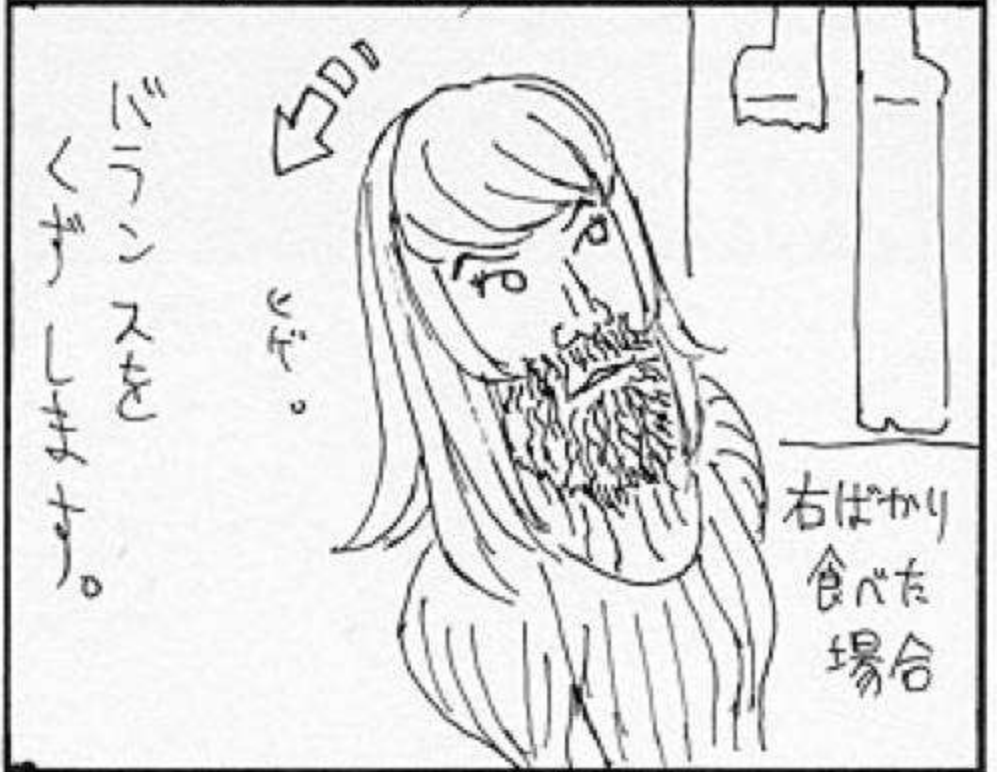 右ばかり
食べた
場合
バランスを
くずします。